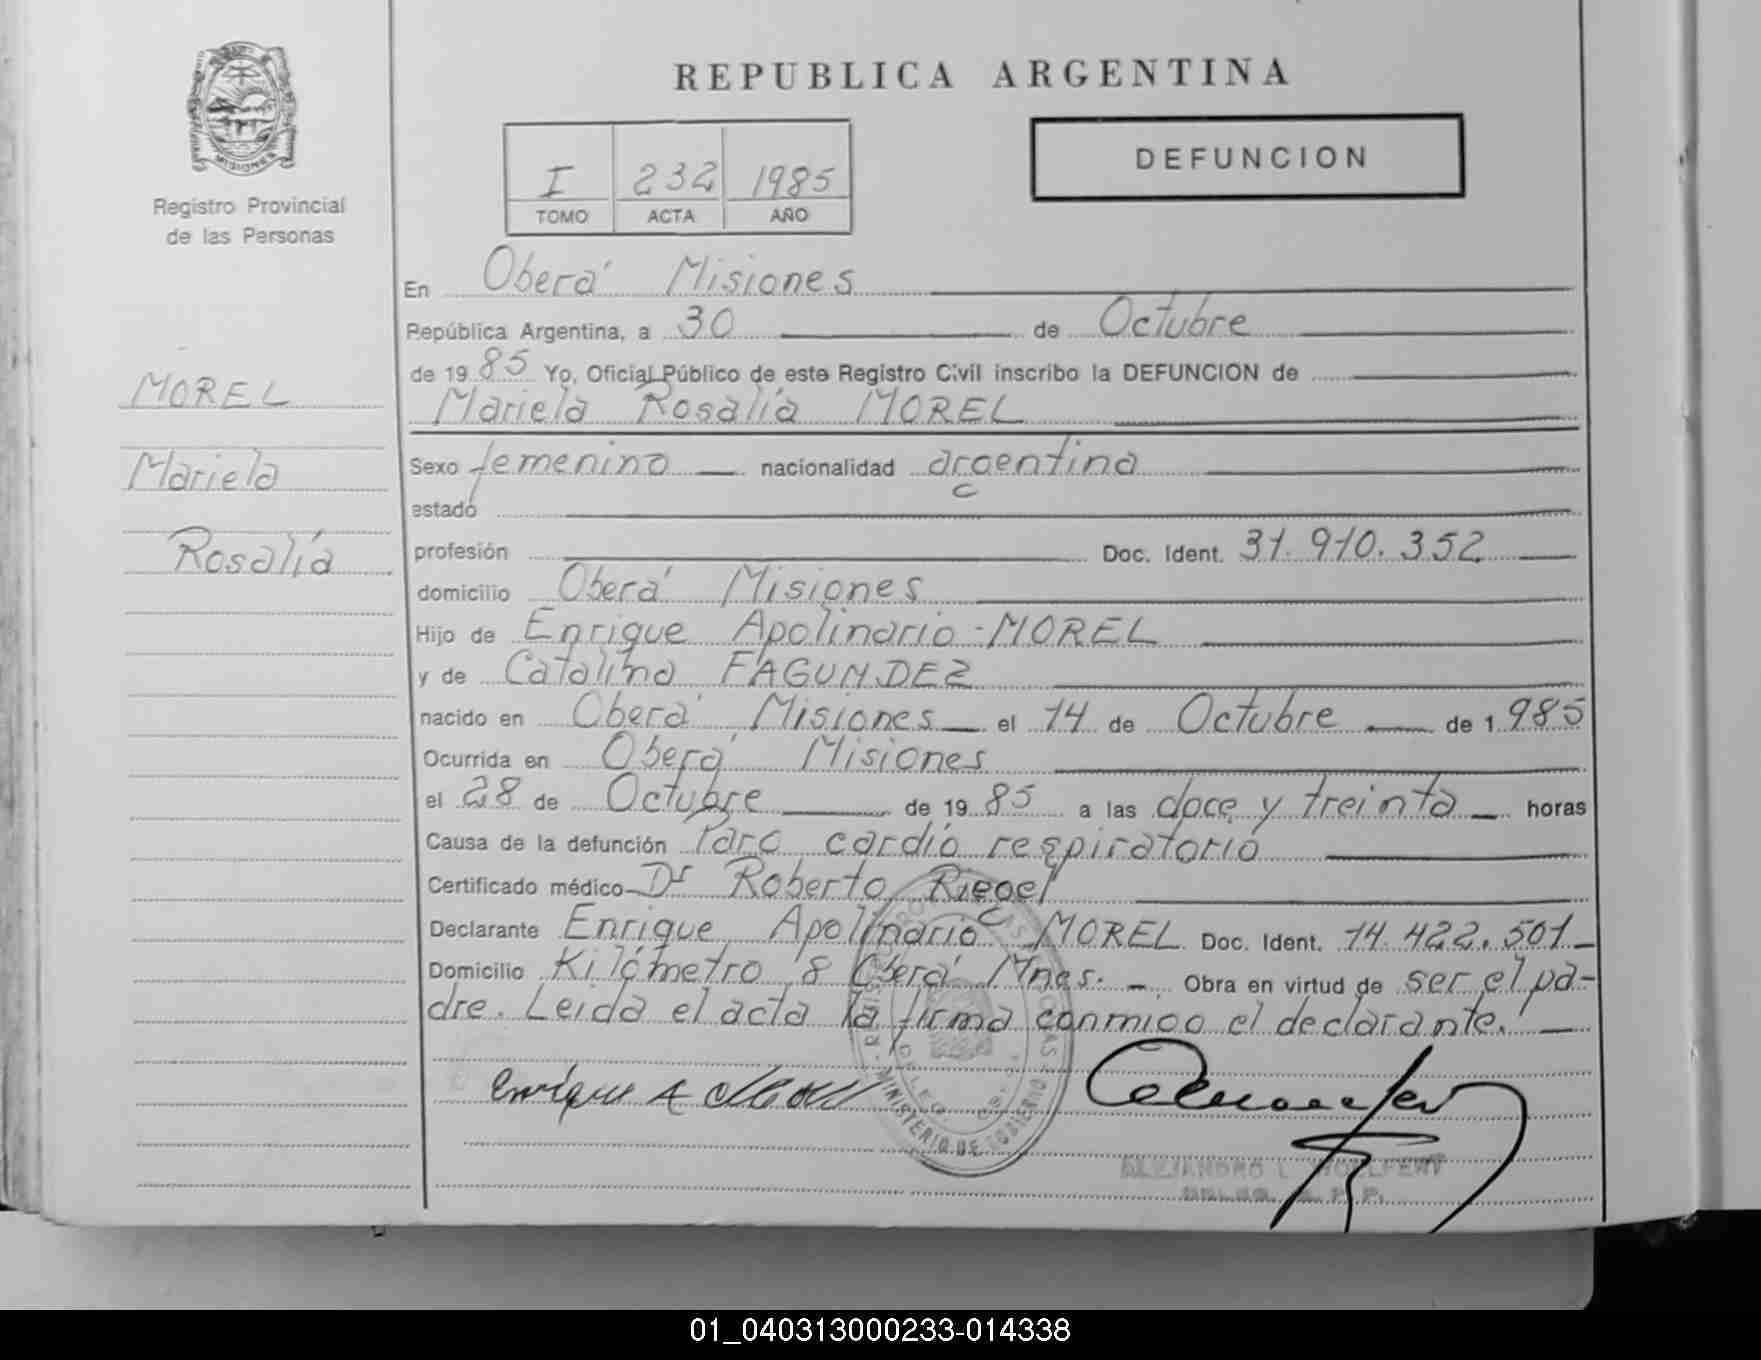 REPUBLICA ARGENTINA
DEFUNCION
I 232 1985
TOMO ACTA AÑO
MISIONES
Registro Provincial
de las Personas
MOREL
Mariela
Rosalía
En Oberá Misiones
República Argentina, a 30 de Octubre
de 19 85 Yo, Oficial Público de este Registro Civil inscribo la DEFUNCION de
Mariela Rosalía MOREL
Sexo femenino nacionalidad argentina
estado
profesión Doc. Ident. 31.910.352
domicilio Oberá Misiones
Hijo de Enrique Apolinario MOREL
y de Catalina FAGUNDEZ
nacido en Oberá Misiones el 14 de Octubre de 1.985
Ocurrida en Oberá Misiones
el 28 de Octubre de 19 85 a las doce y treinta horas
Causa de la defunción Paro cardio respiratorio
Certificado médico Dr Roberto Riegel
Declarante Enrique Apolinario MOREL Doc. Ident. 14.422.501
Domicilio Kilómetro 8 Oberá Mnes. Obra en virtud de ser el pa-
dre. Leida el acta la firma conmigo el declarante.
Enrique A Morel
MINISTERIO DE GOBIERNO
ALEJANDRO L. WOLLFERT
01_040313000233-014338